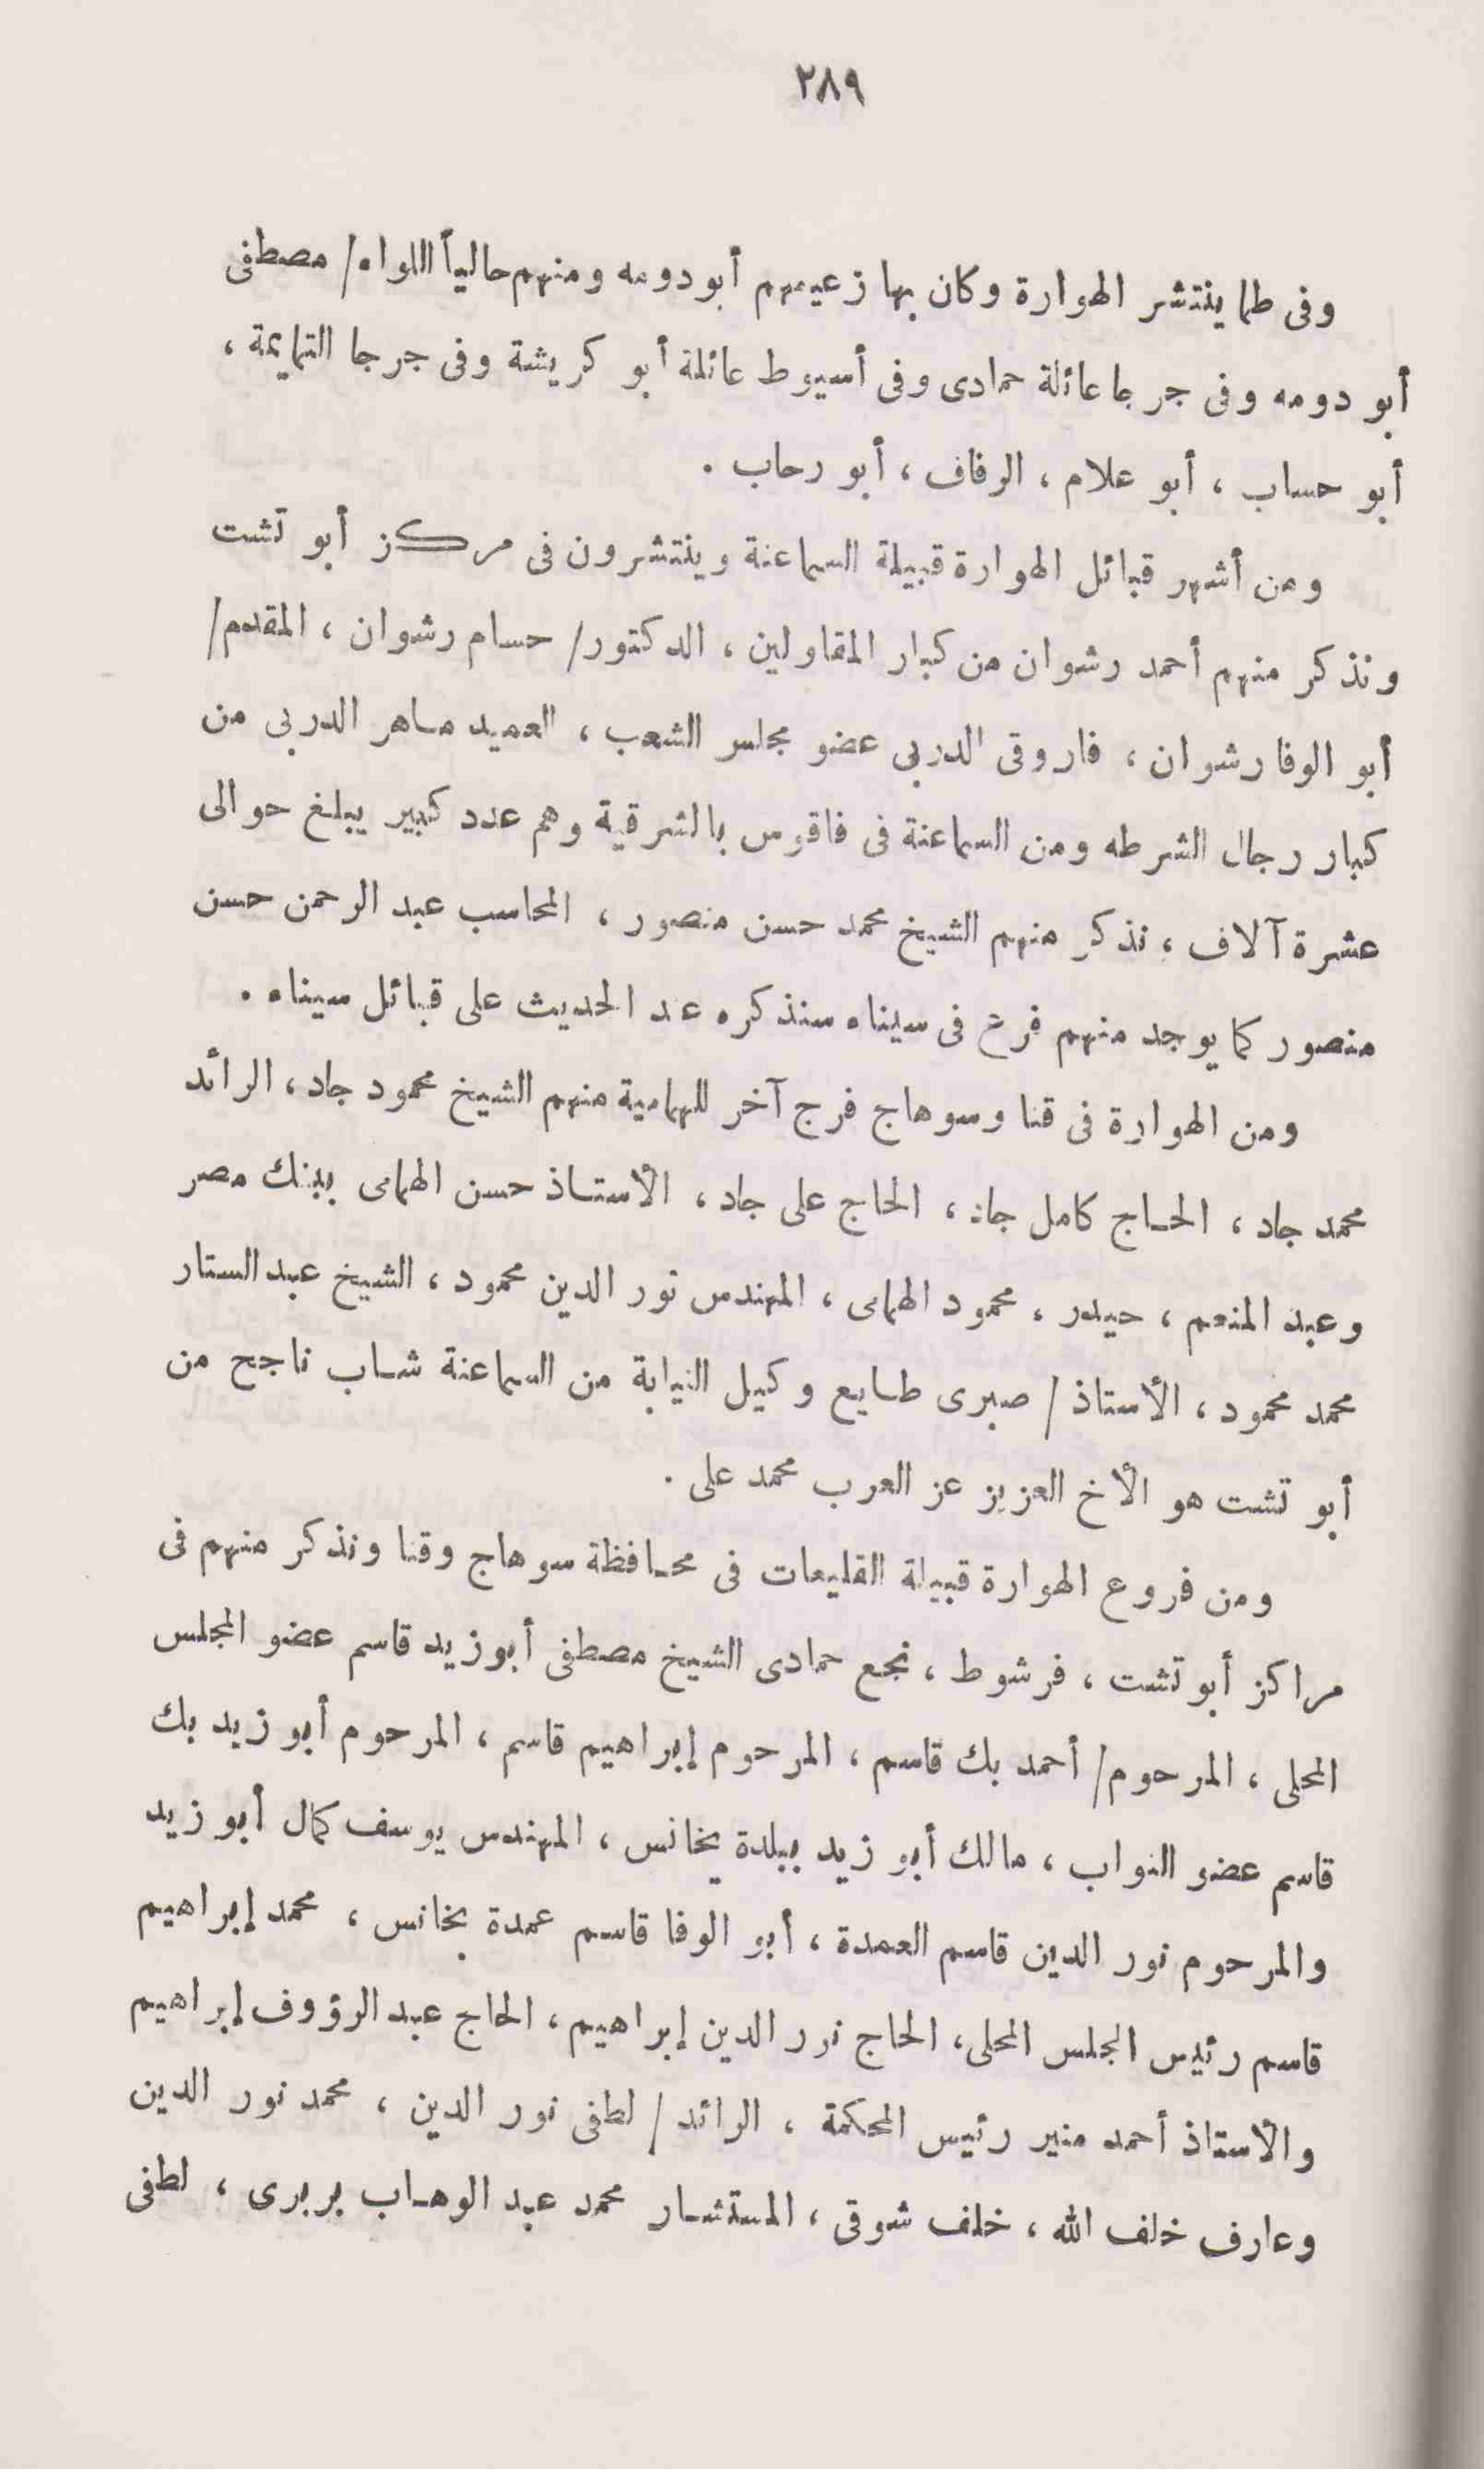 ٢٨٩
وفى طما ينتشر الهوارة وكان بها زعيمهم أبو دومه ومنهم حالياً اللواء/ مصطفى
أبو دومه وفى جرجا عائلة حمادى وفى أسيوط عائلة أبو كريشة وفى جرجا التمايمة ،
أبو حساب ، أبو علام ، الرفاف ، أبو رحاب .
ومن أشهر قبائل الهوارة قبيلة السماعنة وينتشرون فى مركز أبو تشت
ونذكر منهم أحمد رشوان من كبار المقاولين ، الدكتور/ حسام رشوان ، المقدم/
أبو الوفا رشوان ، فاروق الدربى عضو مجلس الشعب ، العميد ماهر الدربى من
كبار رجال الشرطه ومن السماعنة فى فاقوس بالشرقية وهم عدد كبير يبلغ حوالى
عشرة آلاف ، نذكر منهم الشيخ محمد حسن منصور ، المحاسب عبد الرحمن حسن
منصور كما يوجد منهم فرع فى سيناء سنذكره عند الحديث على قبائل سيناء .
ومن الهوارة فى قنا وسوهاج فرج آخر للهمامية منهم الشيخ محمود جاد ، الرائد
محمد جاد ، الحاج كامل جاد ، الحاج على جاد ، الأستاذ حسن الهمامى ببنك مصر
وعبد المنعم ، حيدر ، محمود الهمامى ، المهندس نور الدين محمود ، الشيخ عبد الستار
محمد محمود ، الأستاذ / صبرى طايع وكيل النيابة من السماعنة شاب ناجح من
أبو تشت هو الأخ العزيز عز العرب محمد على .
ومن فروع الهوارة قبيلة القليعات فى محافظة سوهاج وقنا ونذكر منهم فى
مراكز أبو تشت ، فرشوط ، نجع حمادى الشيخ مصطفى أبو زيد قاسم عضو المجلس
المحلى ، المرحوم/ أحمد بك قاسم ، المرحوم إبراهيم قاسم ، المرحوم أبو زيد بك
قاسم عضو النواب ، مالك أبو زيد ببلدة يخانس ، المهندس يوسف كمال أبو زيد
والمرحوم نور الدين قاسم العمدة ، أبو الوفا قاسم عمدة بخانس ، محمد إبراهيم
قاسم رئيس المجلس المحلى ، الحاج نور الدين إبراهيم ، الحاج عبد الرؤوف إبراهيم
والأستاذ أحمد منير رئيس المحكمة ، الرائد / لطفى نور الدين ، محمد نور الدين
وعارف خلف الله ، خلف شوقى ، المستشار محمد عبد الوهاب بربرى ، لطفى